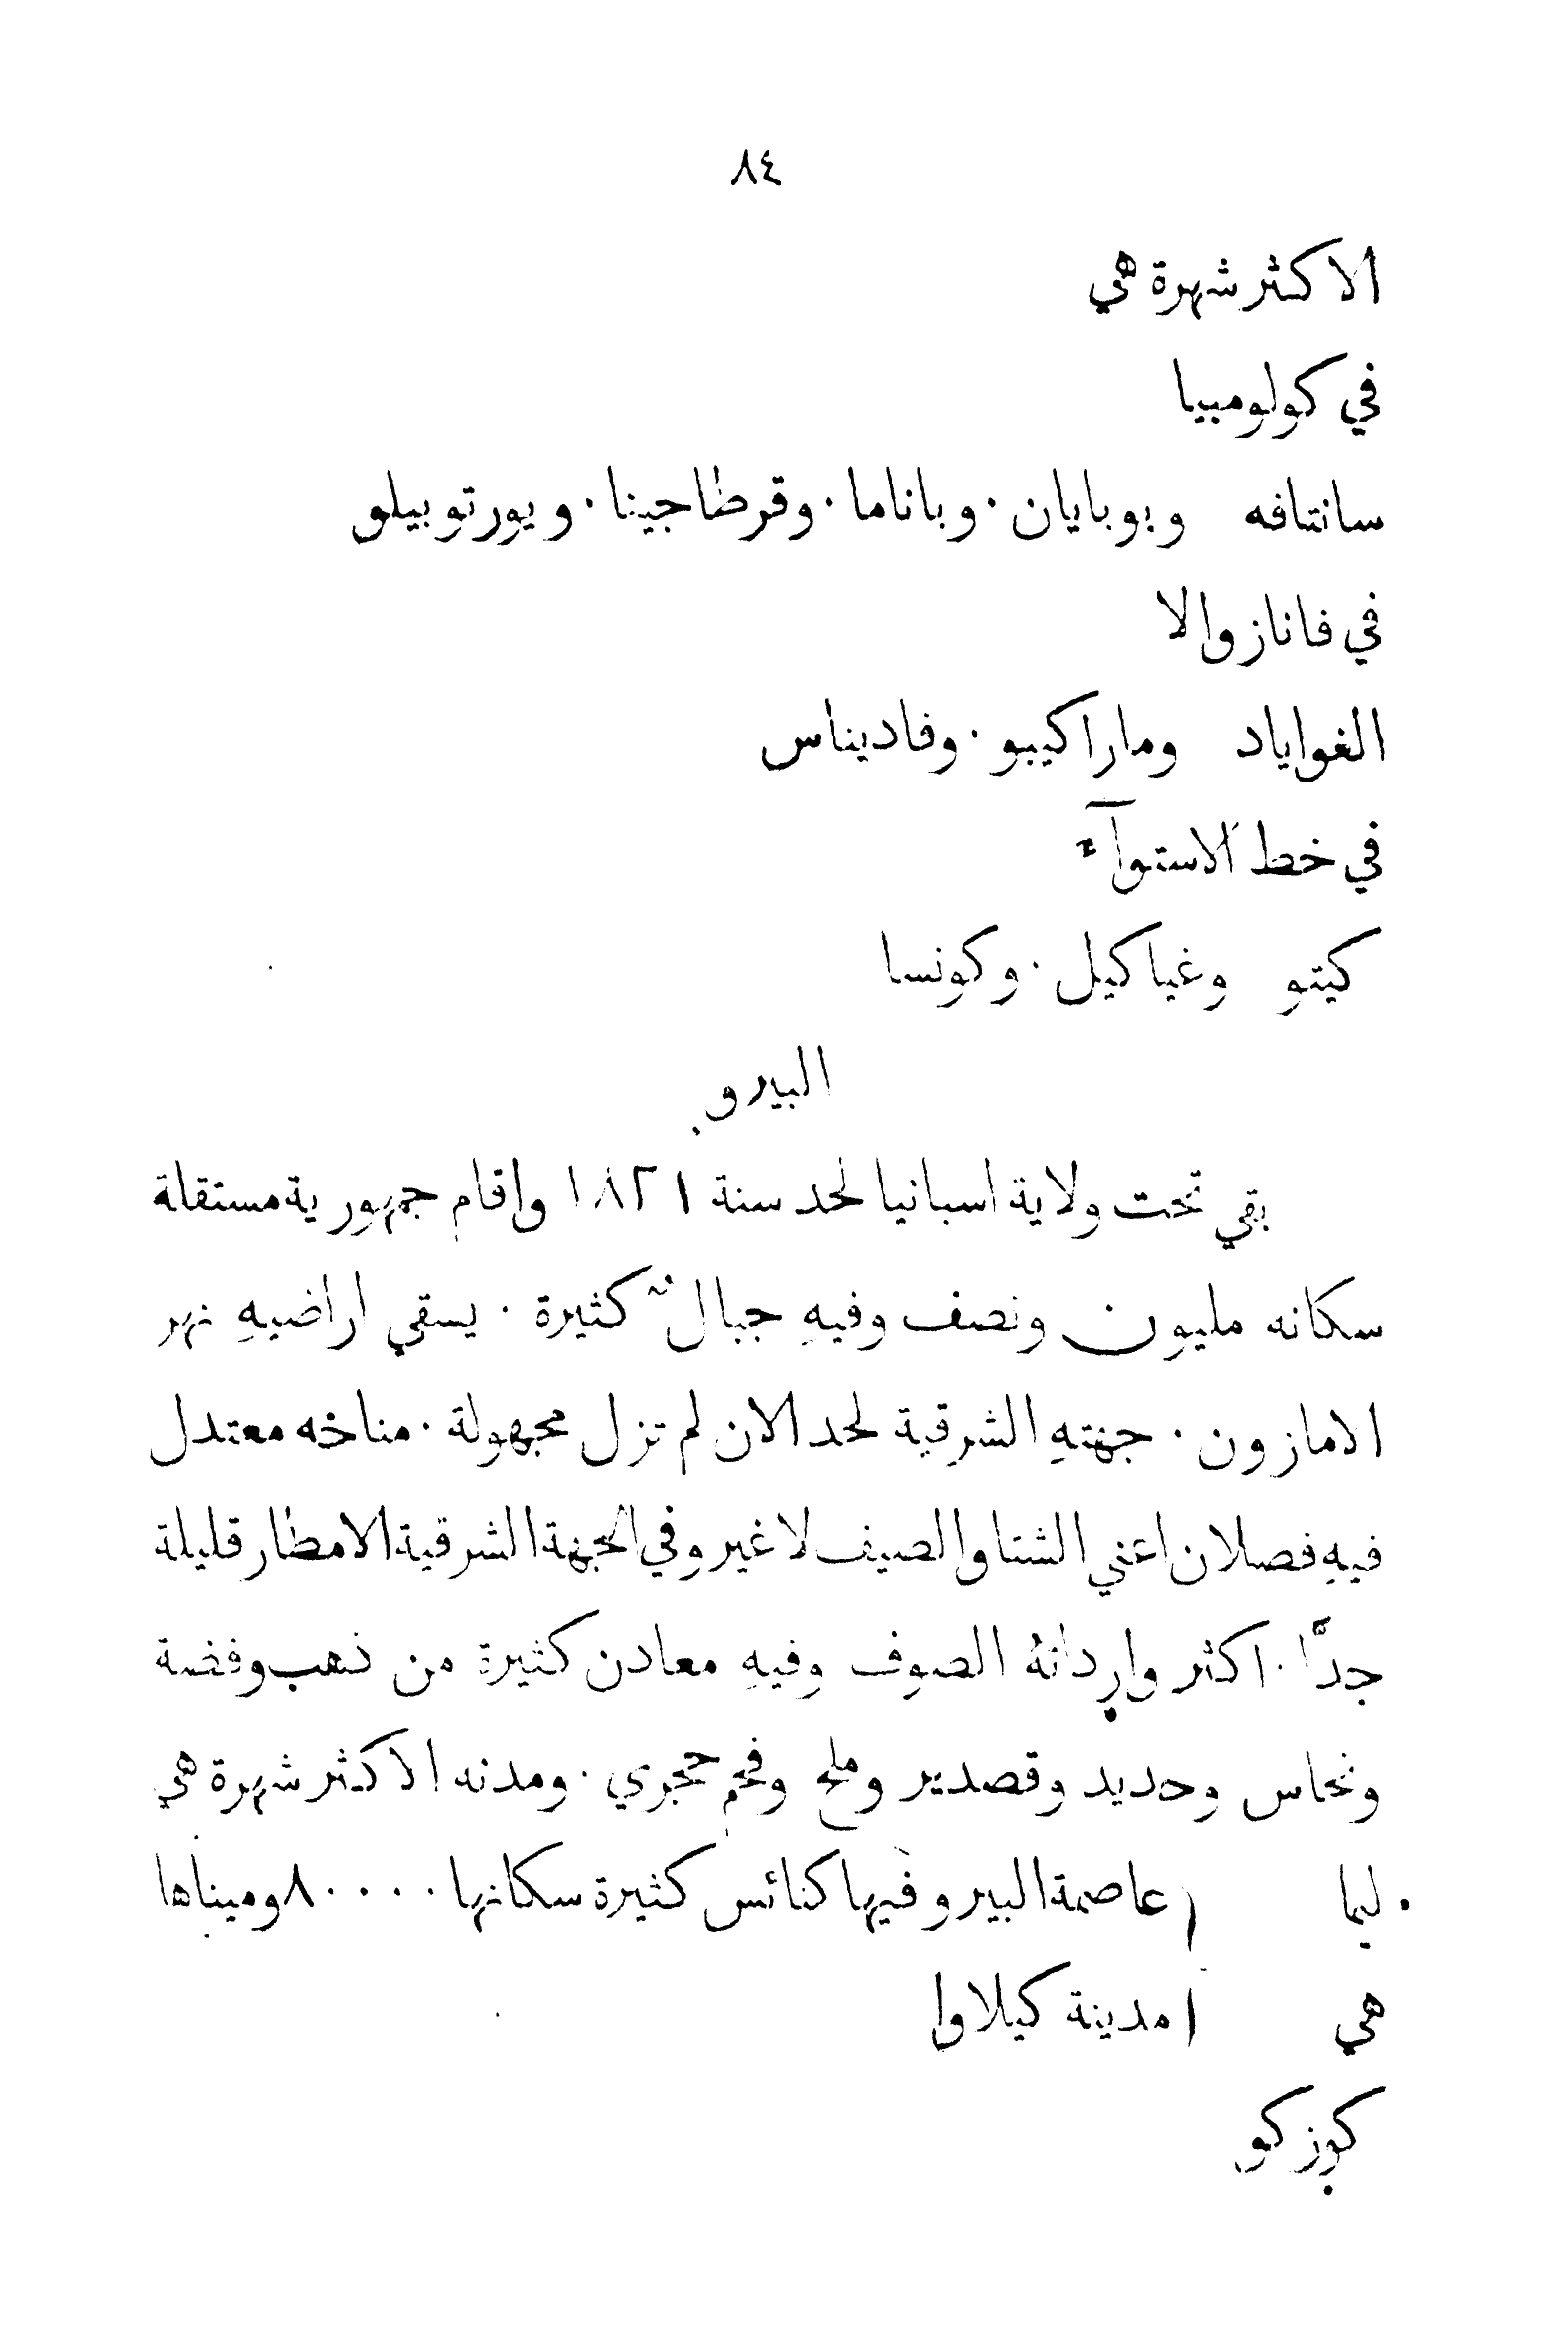 ٨٤
الاكثر شهرة هي
في كولومبيا
سانتافه وبوبايان٠ وباناما٠ وقرطاجينا٠ ويورتوبيلو
في فانازوالا
الغواياد وماراكيبو٠ وفاديناس
في خط الاستوآء
كيتو وغياكيل٠ وكونسا
البيرو
بقي تحت ولاية اسبانيا لحد سنة ١٨٢١ واقام جمهورية مستقلة
سكانه مليون ونصف وفيهِ جبالٌ كثيرة٠ يسقي اراضيهِ نهر
الامازون٠ جهتهِ الشرقية لحد الان لم تزل مجهولة٠ مناخه معتدل
فيهِ فصلان اعني الشتا والصيف لا غير وفي الجهة الشرقية الامطار قليلة
جدًّا٠ اكثر وارداتهُ الصوف وفيهِ معادن كثيرة من ذهب وفضة
ونحاس وحديد وقصدير وملح وفحم حجري٠ ومدنه الاكثر شهرة هي
ليما ( عاصمة البيرو فيها كنائس كثيرة سكانها ٨٠٠٠٠ وميناها
هي ( مدينة كيلاوا
كوزكو